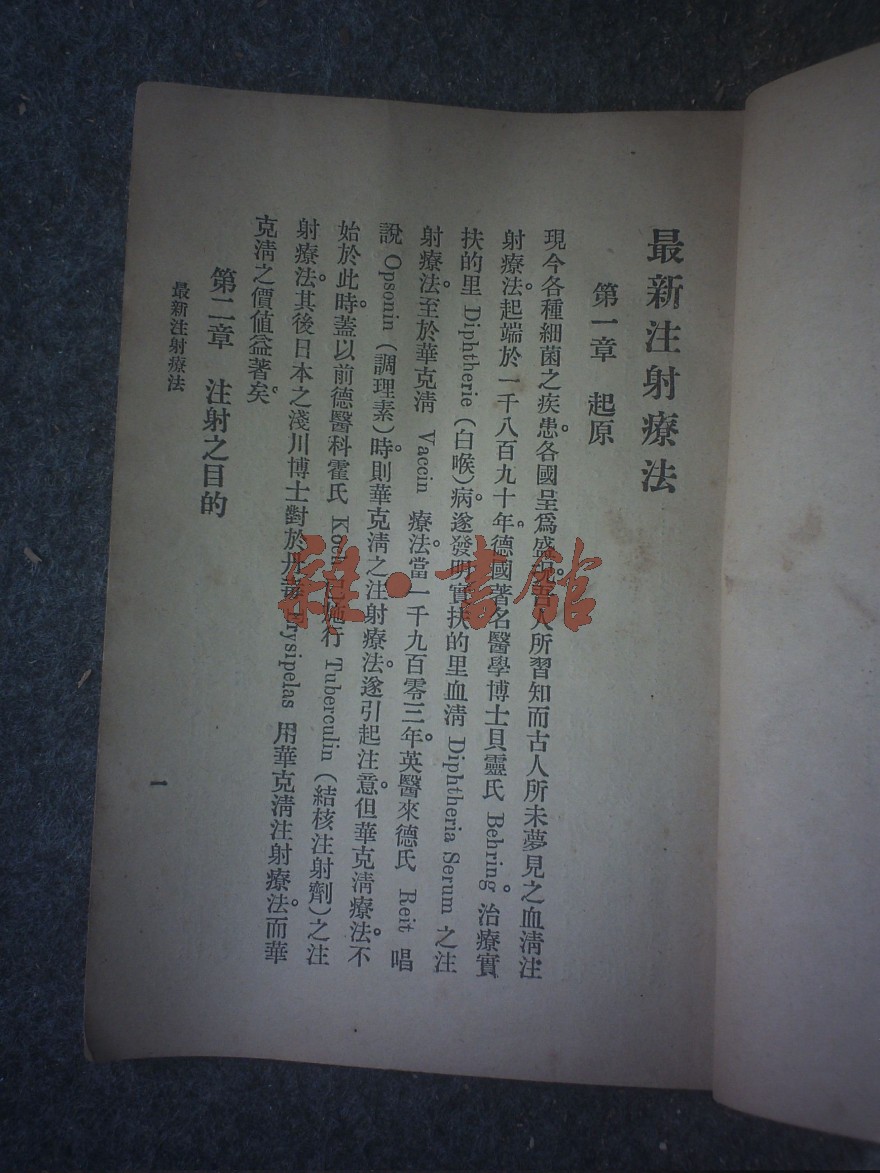 最新注射療法
第一章　起原
現今各種細菌之疾患。各國呈爲盛況。吾人所習知而古人所未夢見之血清注
射療法。起端於一千八百九十年。德國著名醫學博士貝靈氏 Behring。治療實
扶的里 Diphtherie（白喉）病。遂發明實扶的里血清 Diphtheria Serum 之注
射療法。至於華克淸 Vaccin 療法。當一千九百零三年。英醫來德氏 Reit 唱
說 Opsonin（調理素）時。則華克淸之注射療法。遂引起注意。但華克淸療法。不
始於此。時蓋以前德醫科霍氏 Koch 已施行 Tuberculin（結核注射劑）之注
射療法。其後日本之淺川博士對於丹毒 Erysipelas 用華克淸注射療法。而華
克淸之價値益著矣。
第二章　注射之目的
最新注射療法
一
雜·書館